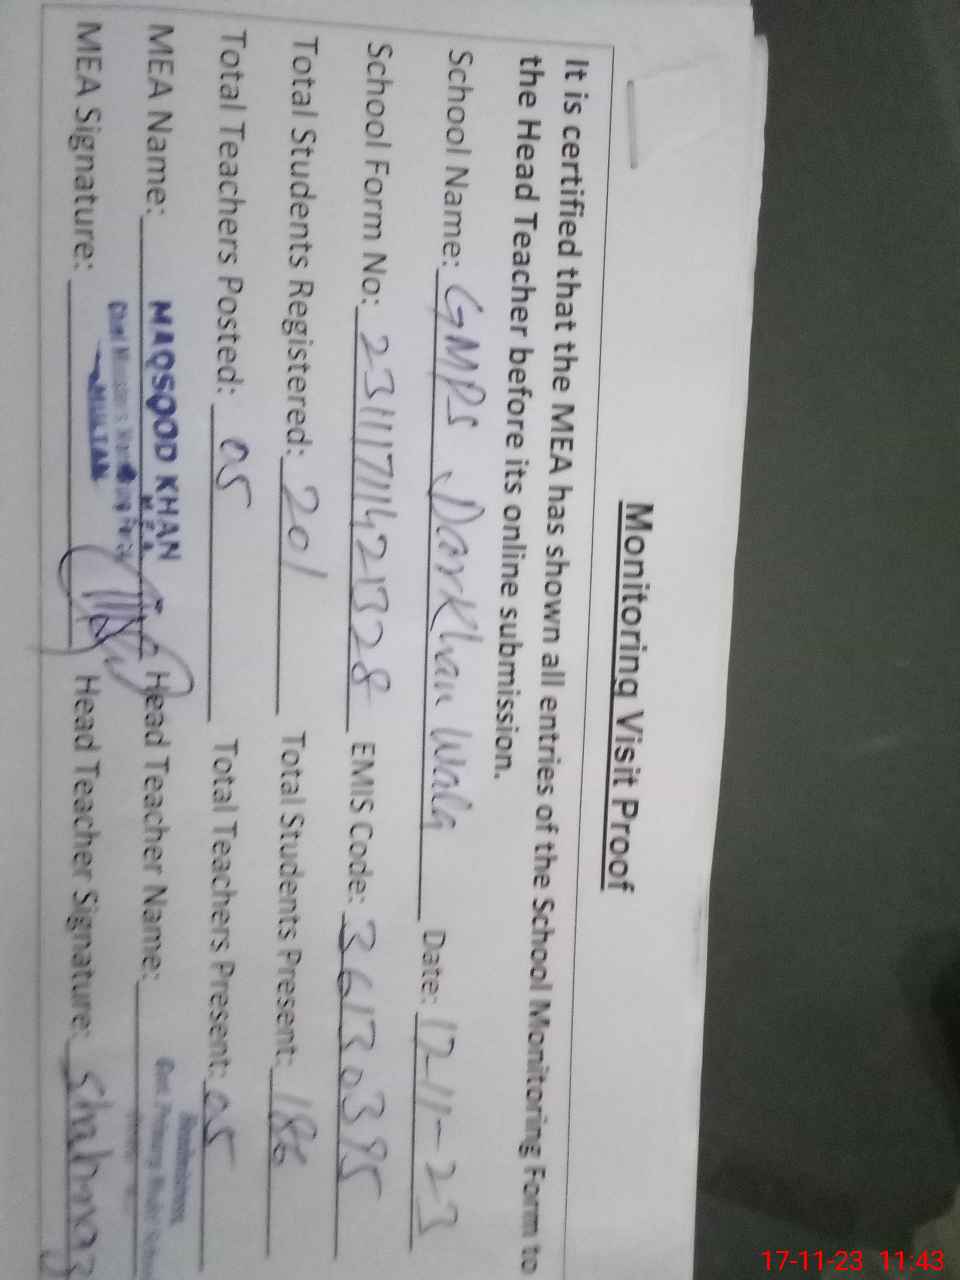 Monitoring Visit Proof
It is certified that the MEA has shown all entries of the School Monitoring Form to
the Head Teacher before its online submission.
School Name: GMPS Darkhan Wala Date: 17-11-23
School Form No: 23111711421328 EMIS Code: 36130395
Total Students Registered: 201 Total Students Present: 186
Total Teachers Posted: 05 Total Teachers Present: 05
MEA Name: MAQSOOD KHAN Head Teacher Name: Headmistress
M.E.A Govt. Primary Model
MULTAN
MEA Signature: Head Teacher Signature: Shahnaz
17-11-23 11:43